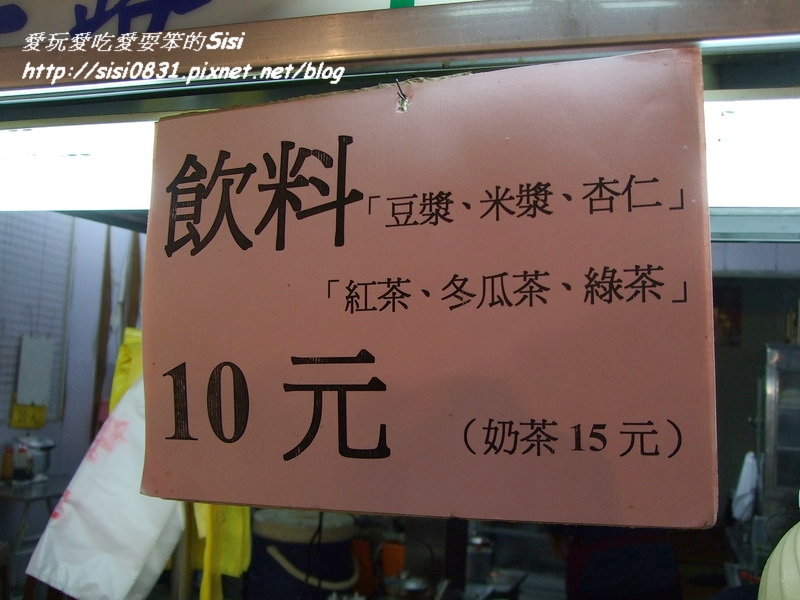 愛玩愛吃愛耍笨的Sisi
http://sisi0831.pixnet.net/blog
飲料「豆漿、米漿、杏仁」
「紅茶、冬瓜茶、綠茶」
10元 （奶茶15元）